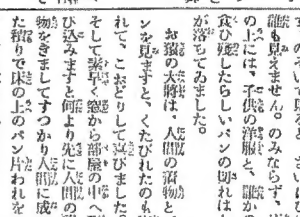 誰も見えません。のみならず、
の上には、子供の洋服と、
食ひ残したらしいパンの切れは
が落ちてゐました。
お猿の大将は、人間の着物と
ンを見ますと、くたびれたのも
れて、こおどりして喜びました。
そして素早く窓から部屋の中へ
び込みますと何より先に人間の
物をきましてすつかり人間に成
た積りで床の上のパン片われを